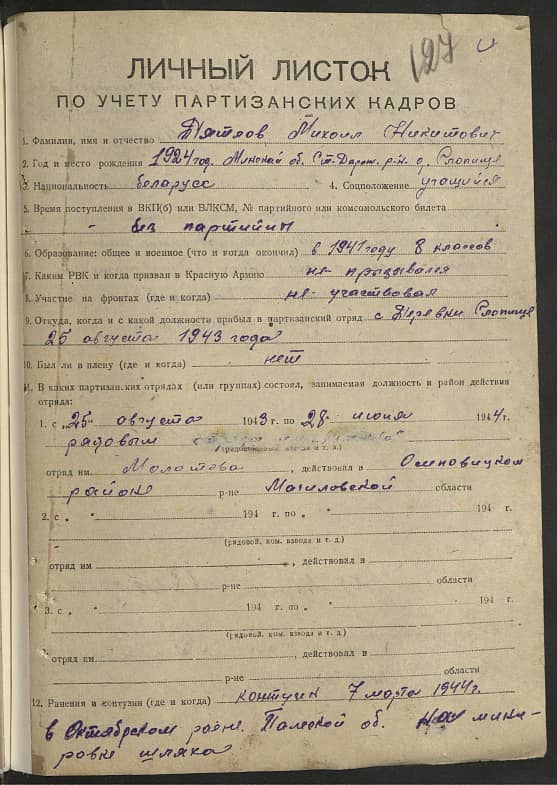 127
ЛИЧНЫЙ ЛИСТОК
ПО УЧЕТУ ПАРТИЗАНСКИХ КАДРОВ
1. Фамилия, имя и отчество Михаил Никитович
2. Год и место рождения 1924 год. Минской об. Ст-Дорож. р-н д.
3. Национальность беларусс 4. Соцположение учащийся
5. Время поступления в ВКП(б) или ВЛКСМ, № партийного или комсомольского билета
- без партийный
6. Образование: общее и военное (что и когда окончил) в 1941 году 8 классов
7. Каким РВК и когда призван в Красную Армию не-прызывался
8. Участие на фронтах (где и когда) не-участвовал
9. Откуда, когда и с какой должности прибыл в партизанский отряд с деревни
25 августа 1943 года
10. Был ли в плену (где и когда) нет
11. В каких партизанских отрядах (или группах) состоял, занимаемая должность и район действия
отряда:
1. с "25" августа 1943 г. по "28" июня 1944 г.
рядовым
(рядовой, ком. взвода и т. д.)
отряд им. Молотова, действовал в
районе р-не Могиловской области
2. с " " 194 г. по " " 194 г.
(рядовой, ком. взвода и т. д.)
отряд им , действовал в
р-не области
3. с " " 194 г. по " " 194 г.
(рядовой, ком. взвода и т. д.)
отряд им. , действовал в
р-не области
12. Ранения и контузии (где и когда) контузия 7 марта 1944 г.
в Октябрском районе. об. на мини-
ровке шляха